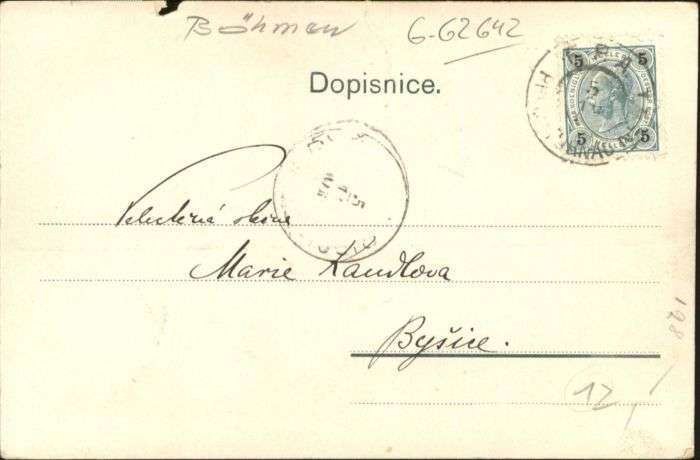 Böhmen 6-62642
Dopisnice.
5 5
5 5
Velectěná slečna
Marie Kandlova
Byšice.
198
12